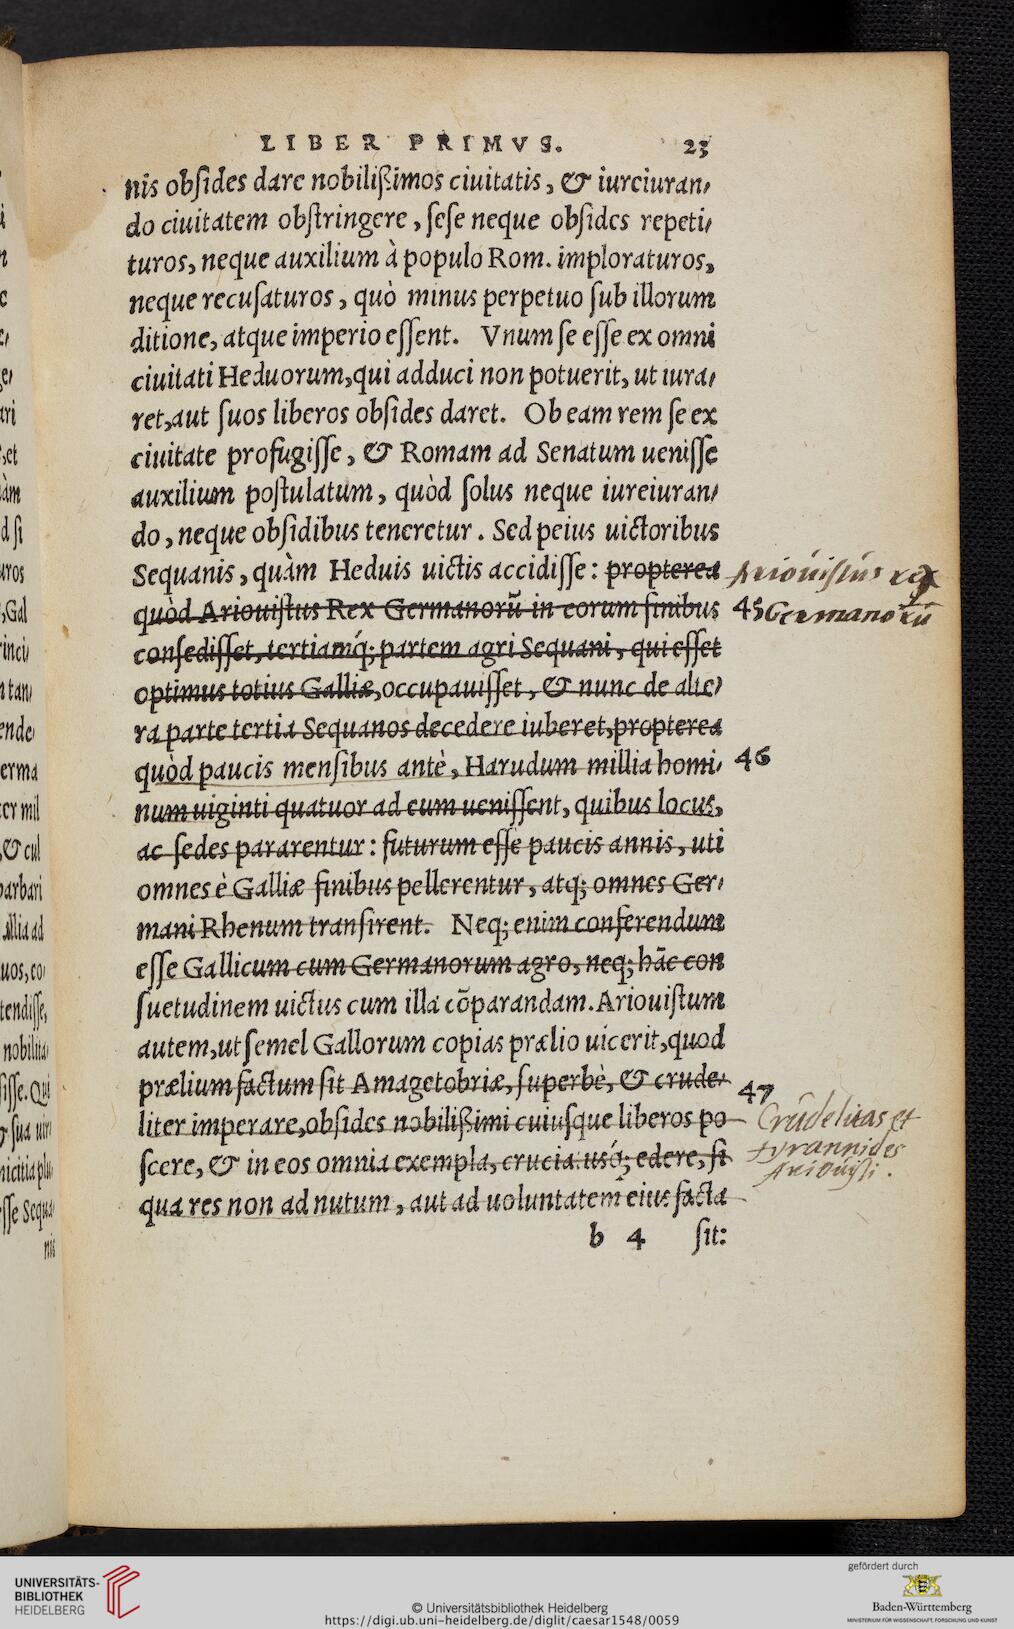 LIBER PRIMVS. 23
nis obſides dare nobilißimos ciuitatis, & iureiuran,
do ciuitatem obſtringere, ſeſe neque obſides repeti,
turos, neque auxilium à populo Rom. imploraturos,
neque recuſaturos, quò minus perpetuo ſub illorum
ditione, atque imperio eſſent. Vnum ſe eſſe ex omni
ciuitati Heduorum, qui adduci non potuerit, ut iura,
ret, aut ſuos liberos obſides daret. Ob eam rem ſe ex
ciuitate profugiſſe, & Romam ad Senatum ueniſſe
auxilium poſtulatum, quòd ſolus neque iureiuran,
do, neque obſidibus teneretur. Sed peius uictoribus
Sequanis, quàm Heduis uictis accidiſſe: propterea
Ariouistus rex
quòd Ariouiſtus Rex Germanorũ in eorum finibus
45 Germanorũ
conſediſſet, tertiamq́; partem agri Sequani, qui eſſet
optimus totius Galliæ, occupauiſſet, & nunc de alte,
ra parte tertia Sequanos decedere iuberet, propterea
quòd paucis menſibus antè, Harudum millia homi, 46
num uiginti quatuor ad eum ueniſſent, quibus locus,
ac ſedes pararentur: futurum eſſe paucis annis, uti
omnes è Galliæ finibus pellerentur, atq; omnes Ger,
mani Rhenum tranſirent. Neq; enim conferendum
eſſe Gallicum cum Germanorum agro, neq; hãc con
ſuetudinem uictus cum illa cõparandam. Ariouiſtum
autem, ut ſemel Gallorum copias prælio uicerit, quod
prælium factum ſit Amagetobriæ, ſuperbè, & crude,
47
liter imperare, obſides nobilißimi cuiuſque liberos po
Crudelitas et
tyrannides
Ariouiſti.
ſcere, & in eos omnia exempla, cruciatusq́; edere, ſi
qua res non ad nutum, aut ad uoluntatem eius facta
b 4 ſit:
UNIVERSITÄTS-
BIBLIOTHEK
HEIDELBERG
© Universitätsbibliothek Heidelberg
https://digi.ub.uni-heidelberg.de/diglit/caesar1548/0059
gefördert durch
Baden-Württemberg
MINISTERIUM FÜR WISSENSCHAFT, FORSCHUNG UND KUNST